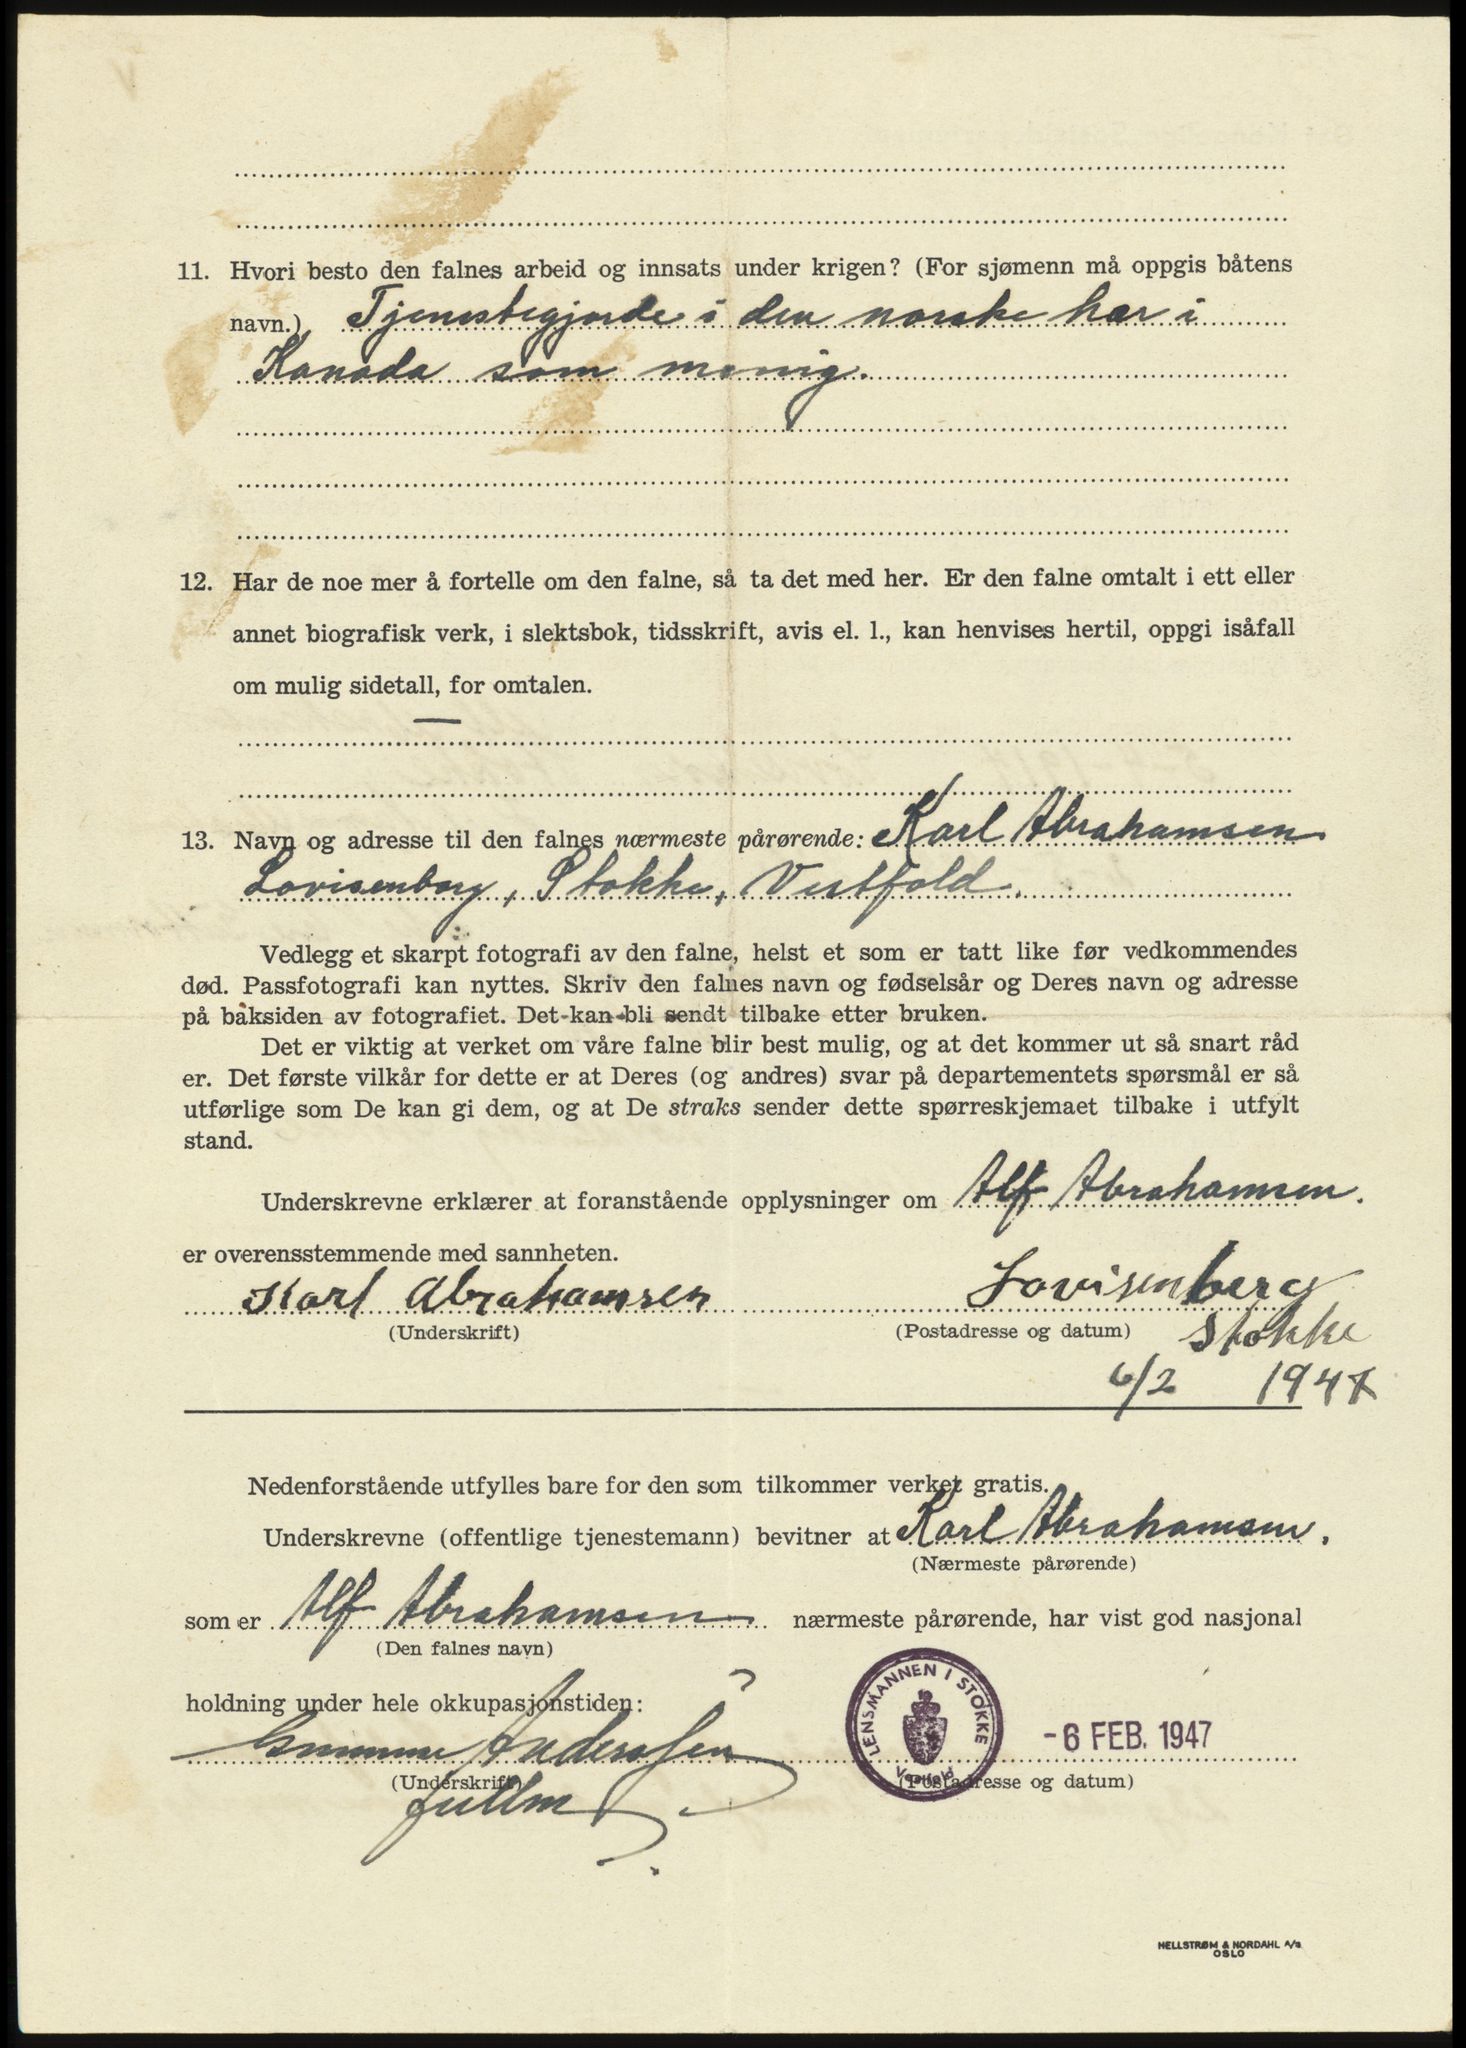 11. Hvori besto den falnes arbeid og innsats under krigen? (For sjømenn må oppgis båtens
navn.) Tjenestegjorde i den norske hær i
Kanada som menig.
12. Har de noe mer å fortelle om den falne, så ta det med her. Er den falne omtalt i ett eller
annet biografisk verk, i slektsbok, tidsskrift, avis el. l., kan henvises hertil, oppgi isåfall
om mulig sidetall, for omtalen.
—
13. Navn og adresse til den falnes nærmeste pårørende: Karl Abrahamsen
Lovisenborg, Stokke, Vestfold.
Vedlegg et skarpt fotografi av den falne, helst et som er tatt like før vedkommendes
død. Passfotografi kan nyttes. Skriv den falnes navn og fødselsår og Deres navn og adresse
på baksiden av fotografiet. Det kan bli sendt tilbake etter bruken.
Det er viktig at verket om våre falne blir best mulig, og at det kommer ut så snart råd
er. Det første vilkår for dette er at Deres (og andres) svar på departementets spørsmål er så
utførlige som De kan gi dem, og at De straks sender dette spørreskjemaet tilbake i utfylt
stand.
Underskrevne erklærer at foranstående opplysninger om Alf Abrahamsen.
er overensstemmende med sannheten.
Karl Abrahamsen Lovisenberg
(Underskrift) (Postadresse og datum) Stokke
6/2 1947
Nedenforstående utfylles bare for den som tilkommer verket gratis.
Underskrevne (offentlige tjenestemann) bevitner at Karl Abrahamsen.
(Nærmeste pårørende)
som er Alf Abrahamsen nærmeste pårørende, har vist god nasjonal
(Den falnes navn)
holdning under hele okkupasjonstiden:
LENSMANNEN I STOKKE
Vestfold
-6 FEB. 1947
Andersen
(Underskrift) (Postadresse og datum)
HELLSTRØM & NORDAHL A/S
OSLO